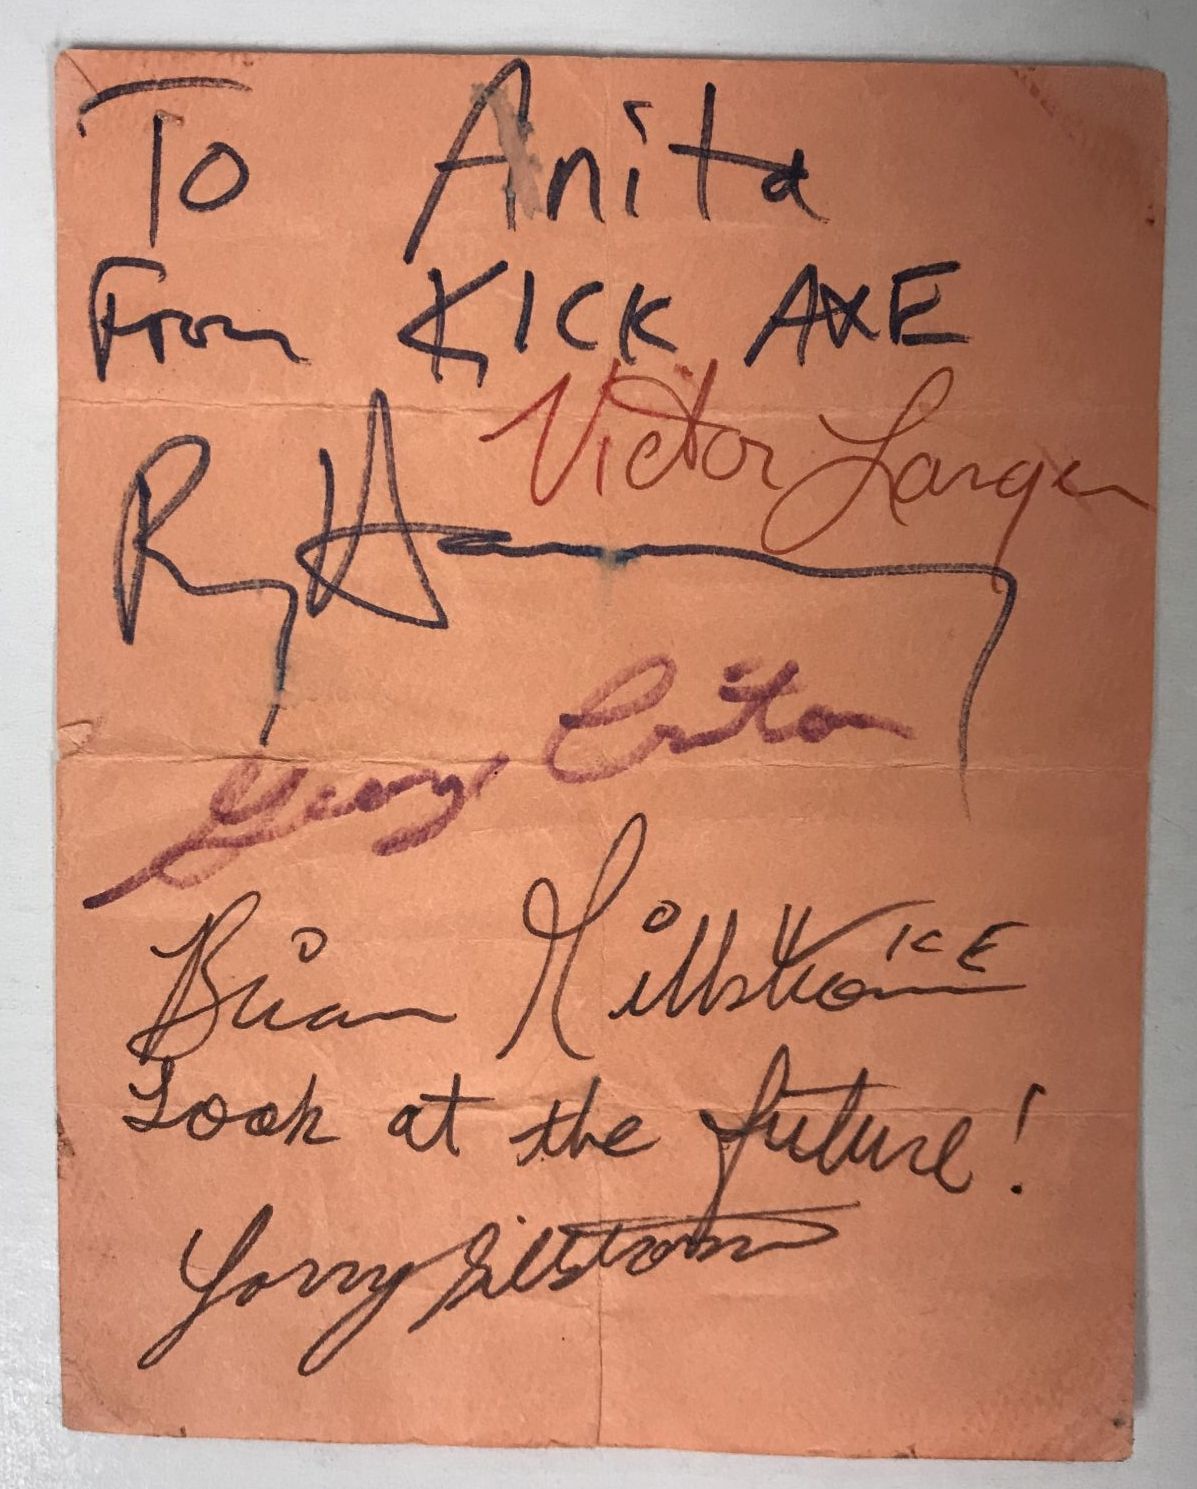 To Anita
From KICK AXE
Victor Langen
Ray Harvey
George Criston
Brian Gillstrom
Look at the future!
Larry Gillstrom